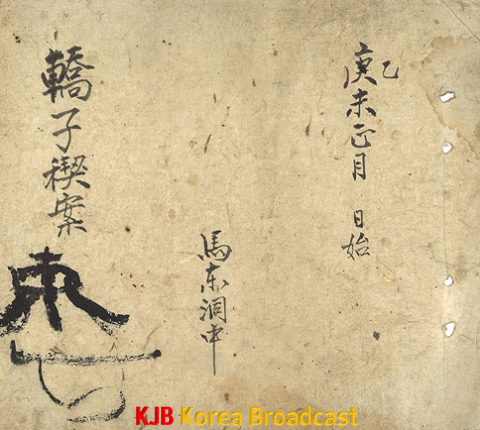 庚乙未正月 日始
馬東洞中
轎子稧案
KJB Korea Broadcast